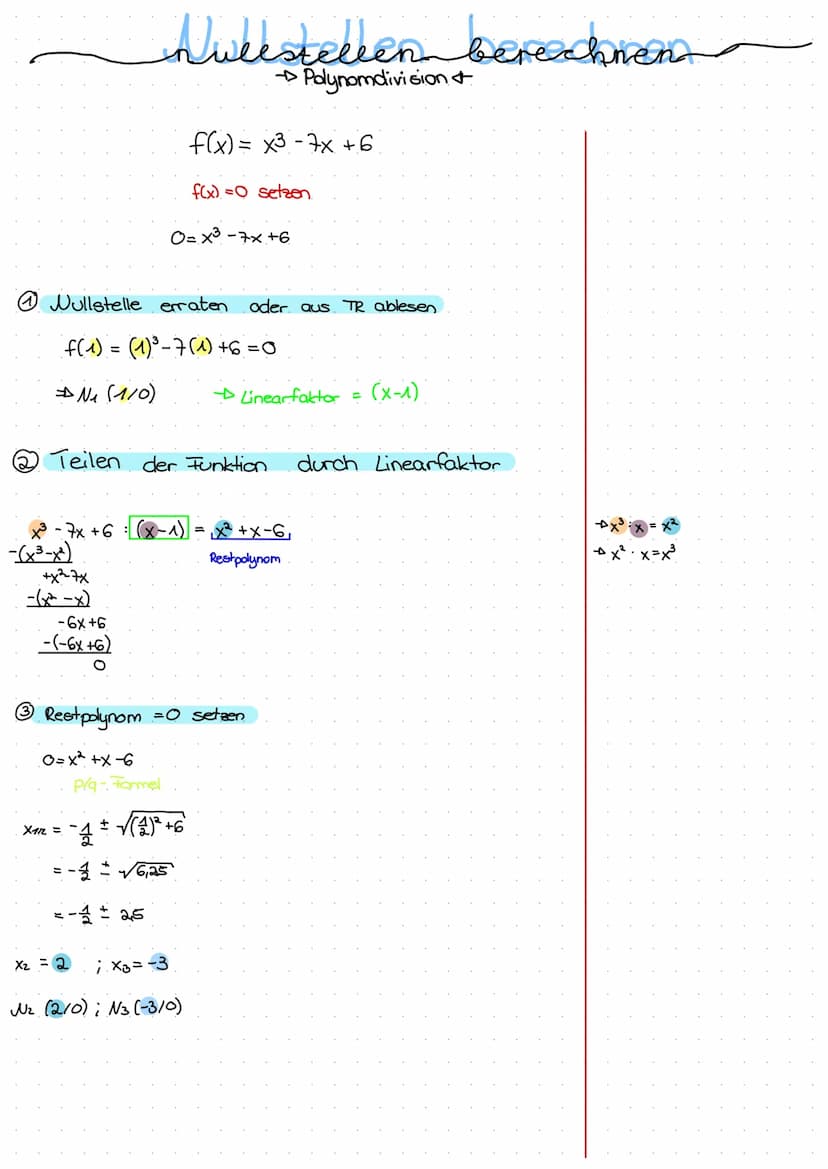 Nullstellen berechnen
→ Polynomdivision ←
f(x) = x³ - 7x + 6
f(x) = 0 setzen
0 = x³ - 7x + 6
① Nullstelle erraten oder aus TR ablesen
f(1) = (1)³ - 7(1) + 6 = 0
⇒ N₁ (1/0) → Linearfaktor = (x-1)
② Teilen der Funktion durch Linearfaktor
x³ - 7x + 6 : (x-1) = x² + x - 6
-(x³-x²)
Restpolynom
+x²-7x
-(x² -x)
-6x+6
-(-6x+6)
0
→ x³ : x = x²
→ x² · x = x³
③ Restpolynom = 0 setzen
0 = x² + x - 6
p/q - Formel
x₁/₂ = -1/2 ± √((1/2)² + 6)
= -1/2 ± √6,25
= -1/2 ± 2,5
x₂ = 2 ; x₃ = -3
N₂ (2/0) ; N₃ (-3/0)